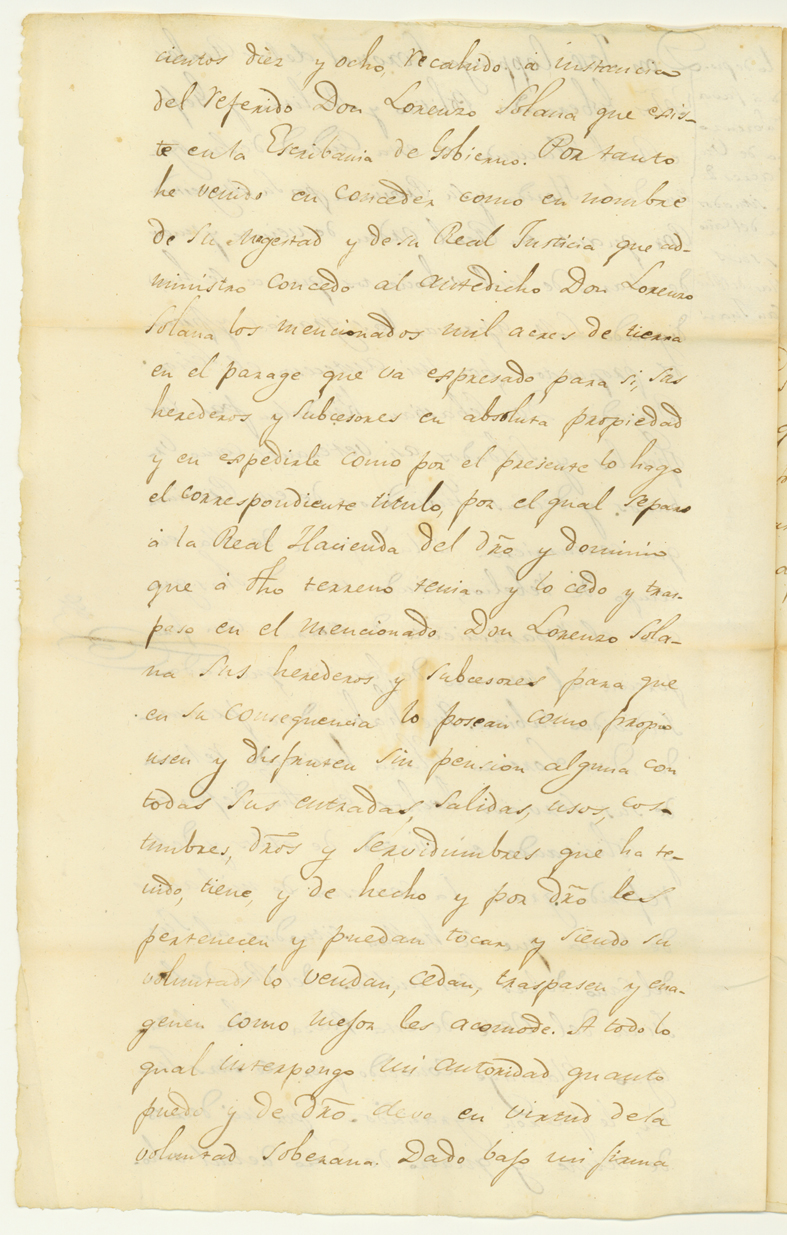 cientos diez y ocho, recahido á instancia
del referido Don Lorenzo Solana que exis-
te en la Escribania de Gobierno. Por tanto
he venido en conceder como en nombre
de su Magestad y de su Real Justicia que ad-
ministro concedo al antedicho Don Lorenzo
Solana los mencionados mil acres de tierra
en el parage que va espresado para si, sus
herederos y subcesores en absoluta propiedad
y en expedirle como por el presente lo hago
el correspondiente titulo, por el qual separo
á la Real Hacienda del dro y dominio
que á dho terreno tenia y lo cedo y tras-
paso en el mencionado Don Lorenzo Sola-
na sus herederos y subcesores para que
en su consequencia lo posean como propio
usen y disfruten sin pension alguna con
todas sus entradas, salidas, usos, cos-
tumbres, dros y servidumbres que ha te-
nido, tiene, y de hecho y por dro les
pertenecen y puedan tocar, y siendo su
voluntad lo vendan, cedan, traspasen y ena-
genen como mejor les acomode. A todo lo
qual interpongo mi autoridad quanto
puedo y de dro. devo en virtud de la
voluntad soberana. Dado bajo mi firma